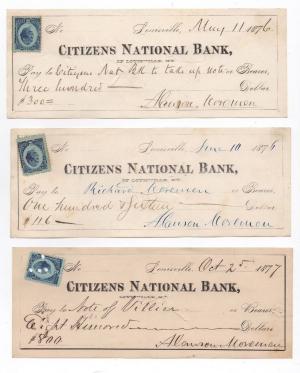 No Louisville, May 11 1876
CITIZENS NATIONAL BANK,
OF LOUISVILLE, KY.
Pay to Citizens Nat Bk to take up note or Bearer,
Three hundred Dollars
$300= Alanson Moremen
No Louisville, June 10 1876
CITIZENS NATIONAL BANK,
OF LOUISVILLE, KY.
Pay to Richard Moremen or Bearer,
One hundred & sixteen Dollars
$116 Alanson Moremen
No Louisville, Oct 25 1877
CITIZENS NATIONAL BANK,
LOUISVILLE, KY.
Pay to Note of Villier or Bearer
Eight Hundred Dollars
$800 Alanson Moremen